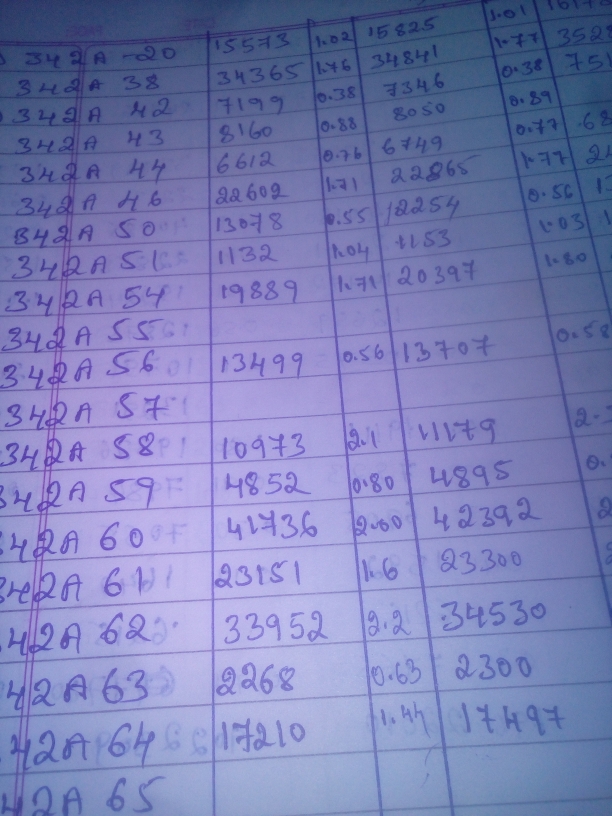 342A -20 15573 1.02 15825 1.01
342A 38 34365 1.76 34841 1.77
342A 42 7199 0.38 7346 0.38
342A 43 8160 0.88 8050 0.89
342A 44 6612 0.76 6749 0.77
342A 46 22602 1.71 22865 1.77
342A 50 13078 0.55 12254 0.56
342A 51 1132 1.04 1153 1.03
342A 54 19889 1.71 20397 1.80
342A 55
342A 56 13499 0.56 13707 0.58
342A 57
342A 58 10973 2.1 11179
342A 59 4852 0.80 4895
342A 60 41736 2.00 42392
342A 61 23151 1.6 23300
42A 62 33952 2.2 34530
42A 63 2268 0.63 2300
42A 64 17210 1.44 17497
42A 65